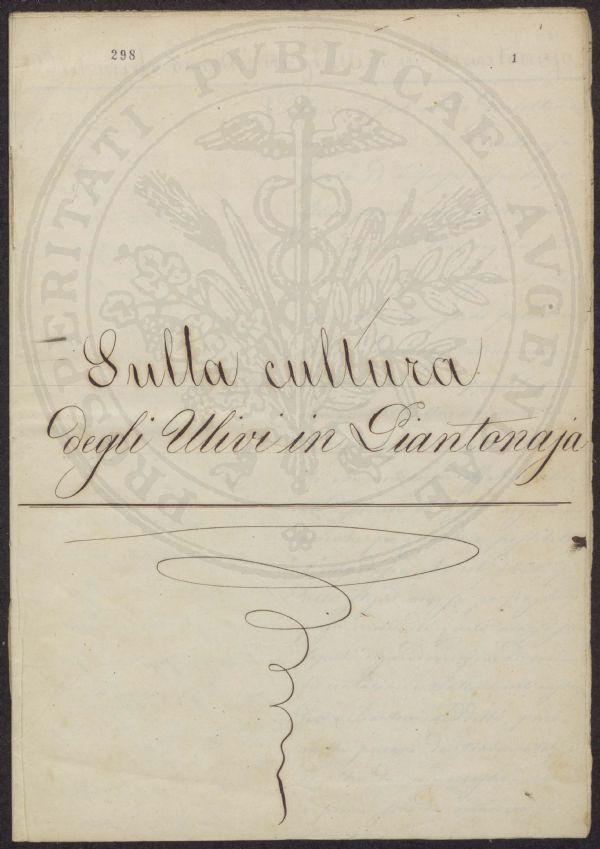 298
1
PROSPERITATI PVBLICAE AVGENDAE
Sulla cultura
degli Ulivi in Piantonaja